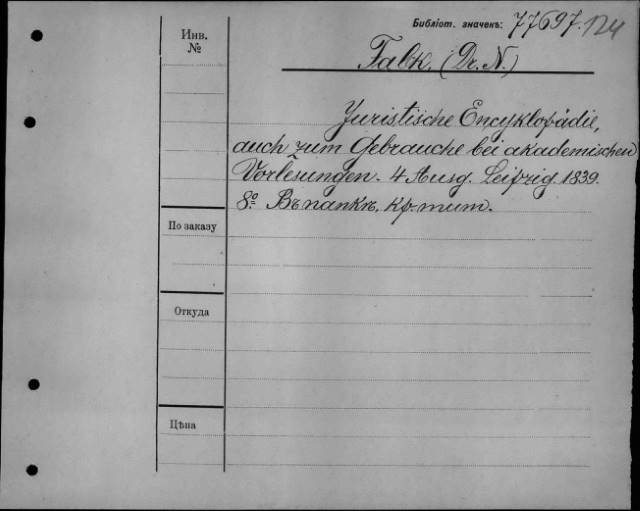 Библіот. значекъ: 77697.
Инв.
№
Falk. (Dr. N.)
Juristische Encyklopädie,
auch zum Gebrauche bei akademischen
Vorlesungen. 4 Ausg. Leipzig. 1839.
8º. Въ папкѣ, кр. тит.
По заказу
Откуда
Цѣна